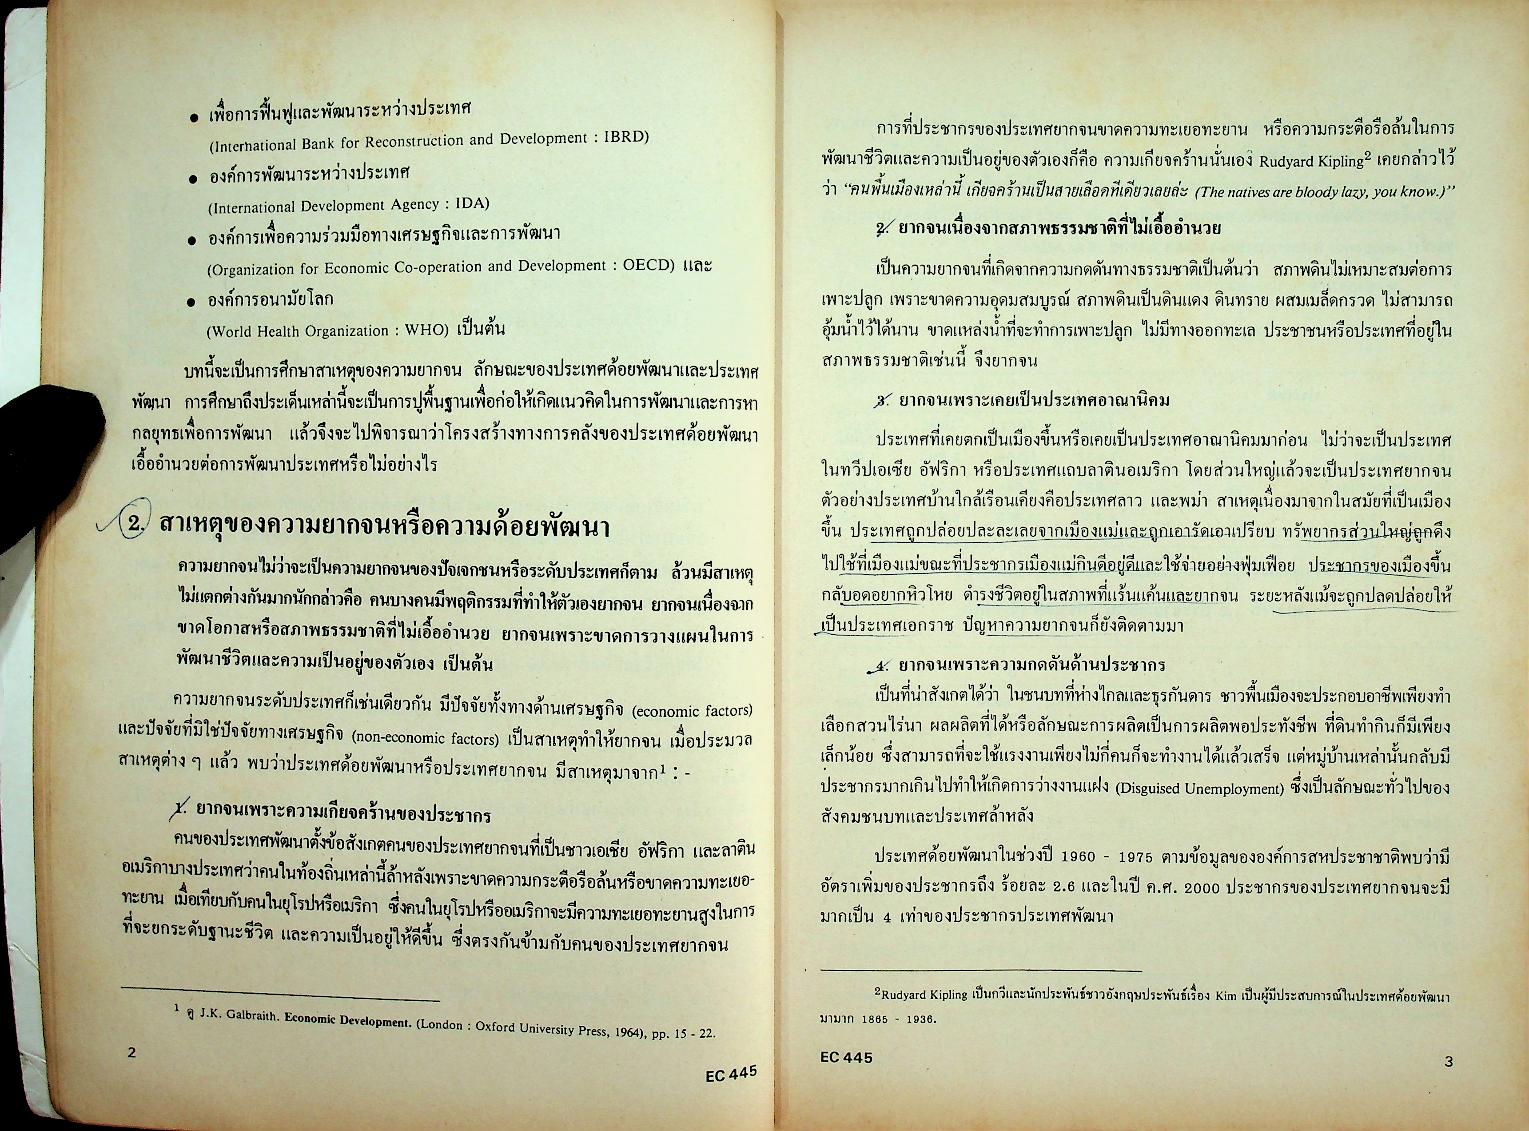 ● เพื่อการฟื้นฟูและพัฒนาระหว่างประเทศ
(International Bank for Reconstruction and Development : IBRD)
● องค์การพัฒนาระหว่างประเทศ
(International Development Agency : IDA)
● องค์การเพื่อความร่วมมือทางเศรษฐกิจและการพัฒนา
(Organization for Economic Co-operation and Development : OECD) และ
● องค์การอนามัยโลก
(World Health Organization : WHO) เป็นต้น
บทนี้จะเป็นการศึกษาสาเหตุของความยากจน ลักษณะของประเทศด้อยพัฒนาและประเทศ
พัฒนา การศึกษาถึงประเด็นเหล่านี้จะเป็นการปูพื้นฐานเพื่อก่อให้เกิดแนวคิดในการพัฒนาและการหา
กลยุทธเพื่อการพัฒนา แล้วจึงจะไปพิจารณาว่าโครงสร้างทางการคลังของประเทศด้อยพัฒนา
เอื้ออำนวยต่อการพัฒนาประเทศหรือไม่อย่างไร
2. สาเหตุของความยากจนหรือความด้อยพัฒนา
ความยากจนไม่ว่าจะเป็นความยากจนของปัจเจกชนหรือระดับประเทศก็ตาม ล้วนมีสาเหตุ
ไม่แตกต่างกันมากนักกล่าวคือ คนบางคนมีพฤติกรรมที่ทำให้ตัวเองยากจน ยากจนเนื่องจาก
ขาดโอกาสหรือสภาพธรรมชาติที่ไม่เอื้ออำนวย ยากจนเพราะขาดการวางแผนในการ
พัฒนาชีวิตและความเป็นอยู่ของตัวเอง เป็นต้น
ความยากจนระดับประเทศก็เช่นเดียวกัน มีปัจจัยทั้งทางด้านเศรษฐกิจ (economic factors)
และปัจจัยที่มิใช่ปัจจัยทางเศรษฐกิจ (non-economic factors) เป็นสาเหตุทำให้ยากจน เมื่อประมวล
สาเหตุต่าง ๆ แล้ว พบว่าประเทศด้อยพัฒนาหรือประเทศยากจน มีสาเหตุมาจาก¹ : -
1. ยากจนเพราะความเกียจคร้านของประชากร
คนของประเทศพัฒนาตั้งข้อสังเกตคนของประเทศยากจนที่เป็นชาวเอเชีย อัฟริกา และลาติน
อเมริกาบางประเทศว่าคนในท้องถิ่นเหล่านี้ล้าหลังเพราะขาดความกระตือรือล้นหรือขาดความทะเยอ-
ทะยาน เมื่อเทียบกับคนในยุโรปหรือเมริกา ซึ่งคนในยุโรปหรืออเมริกาจะมีความทะเยอทะยานสูงในการ
ที่จะยกระดับฐานะชีวิต และความเป็นอยู่ให้ดีขึ้น ซึ่งตรงกันข้ามกับคนของประเทศยากจน
¹ ดู J.K. Galbraith. Economic Development. (London : Oxford University Press, 1964), pp. 15 - 22.
2
EC 445
การที่ประชากรของประเทศยากจนขาดความทะเยอทะยาน หรือความกระตือรือล้นในการ
พัฒนาชีวิตและความเป็นอยู่ของตัวเองก็คือ ความเกียจคร้านนั่นเอง Rudyard Kipling² เคยกล่าวไว้
ว่า “คนพื้นเมืองเหล่านี้ เกียจคร้านเป็นสายเลือดทีเดียวเลยล่ะ (The natives are bloody lazy, you know.)”
2. ยากจนเนื่องจากสภาพธรรมชาติที่ไม่เอื้ออำนวย
เป็นความยากจนที่เกิดจากความกดดันทางธรรมชาติเป็นต้นว่า สภาพดินไม่เหมาะสมต่อการ
เพาะปลูก เพราะขาดความอุดมสมบูรณ์ สภาพดินเป็นดินแดง ดินทราย ผสมเมล็ดกรวด ไม่สามารถ
อุ้มน้ำไว้ได้นาน ขาดแหล่งน้ำที่จะทำการเพาะปลูก ไม่มีทางออกทะเล ประชาชนหรือประเทศที่อยู่ใน
สภาพธรรมชาติเช่นนี้ จึงยากจน
3. ยากจนเพราะเคยเป็นประเทศอาณานิคม
ประเทศที่เคยตกเป็นเมืองขึ้นหรือเคยเป็นประเทศอาณานิคมมาก่อน ไม่ว่าจะเป็นประเทศ
ในทวีปเอเซีย อัฟริกา หรือประเทศแถบลาตินอเมริกา โดยส่วนใหญ่แล้วจะเป็นประเทศยากจน
ตัวอย่างประเทศบ้านใกล้เรือนเคียงคือประเทศลาว และพม่า สาเหตุเนื่องมาจากในสมัยที่เป็นเมือง
ขึ้น ประเทศถูกปล่อยปละละเลยจากเมืองแม่และถูกเอารัดเอาเปรียบ ทรัพยากรส่วนใหญ่ถูกดึง
ไปใช้ที่เมืองแม่ขณะที่ประชากรเมืองแม่กินดีอยู่ดีและใช้จ่ายอย่างฟุ่มเฟือย ประชากรของเมืองขึ้น
กลับอดอยากหิวโหย ดำรงชีวิตอยู่ในสภาพที่แร้นแค้นและยากจน ระยะหลังแม้จะถูกปลดปล่อยให้
เป็นประเทศเอกราช ปัญหาความยากจนก็ยังติดตามมา
4. ยากจนเพราะความกดดันด้านประชากร
เป็นที่น่าสังเกตได้ว่า ในชนบทที่ห่างไกลและธุรกันดาร ชาวพื้นเมืองจะประกอบอาชีพเพียงทำ
เลือกสวนไร่นา ผลผลิตที่ได้หรือลักษณะการผลิตเป็นการผลิตพอประทังชีพ ที่ดินทำกินก็มีเพียง
เล็กน้อย ซึ่งสามารถที่จะใช้แรงงานเพียงไม่กี่คนก็จะทำงานได้แล้วเสร็จ แต่หมู่บ้านเหล่านั้นกลับมี
ประชากรมากเกินไปทำให้เกิดการว่างงานแฝง (Disguised Unemployment) ซึ่งเป็นลักษณะทั่วไปของ
สังคมชนบทและประเทศล้าหลัง
ประเทศด้อยพัฒนาในช่วงปี 1960 - 1975 ตามข้อมูลขององค์การสหประชาชาติพบว่ามี
อัตราเพิ่มของประชากรถึง ร้อยละ 2.6 และในปี ค.ศ. 2000 ประชากรของประเทศยากจนจะมี
มากเป็น 4 เท่าของประชากรประเทศพัฒนา
²Rudyard Kipling เป็นกวีและนักประพันธ์ชาวอังกฤษประพันธ์เรื่อง Kim เป็นผู้มีประสบการณ์ในประเทศด้อยพัฒนา
มามาก 1865 - 1936.
EC 445
3